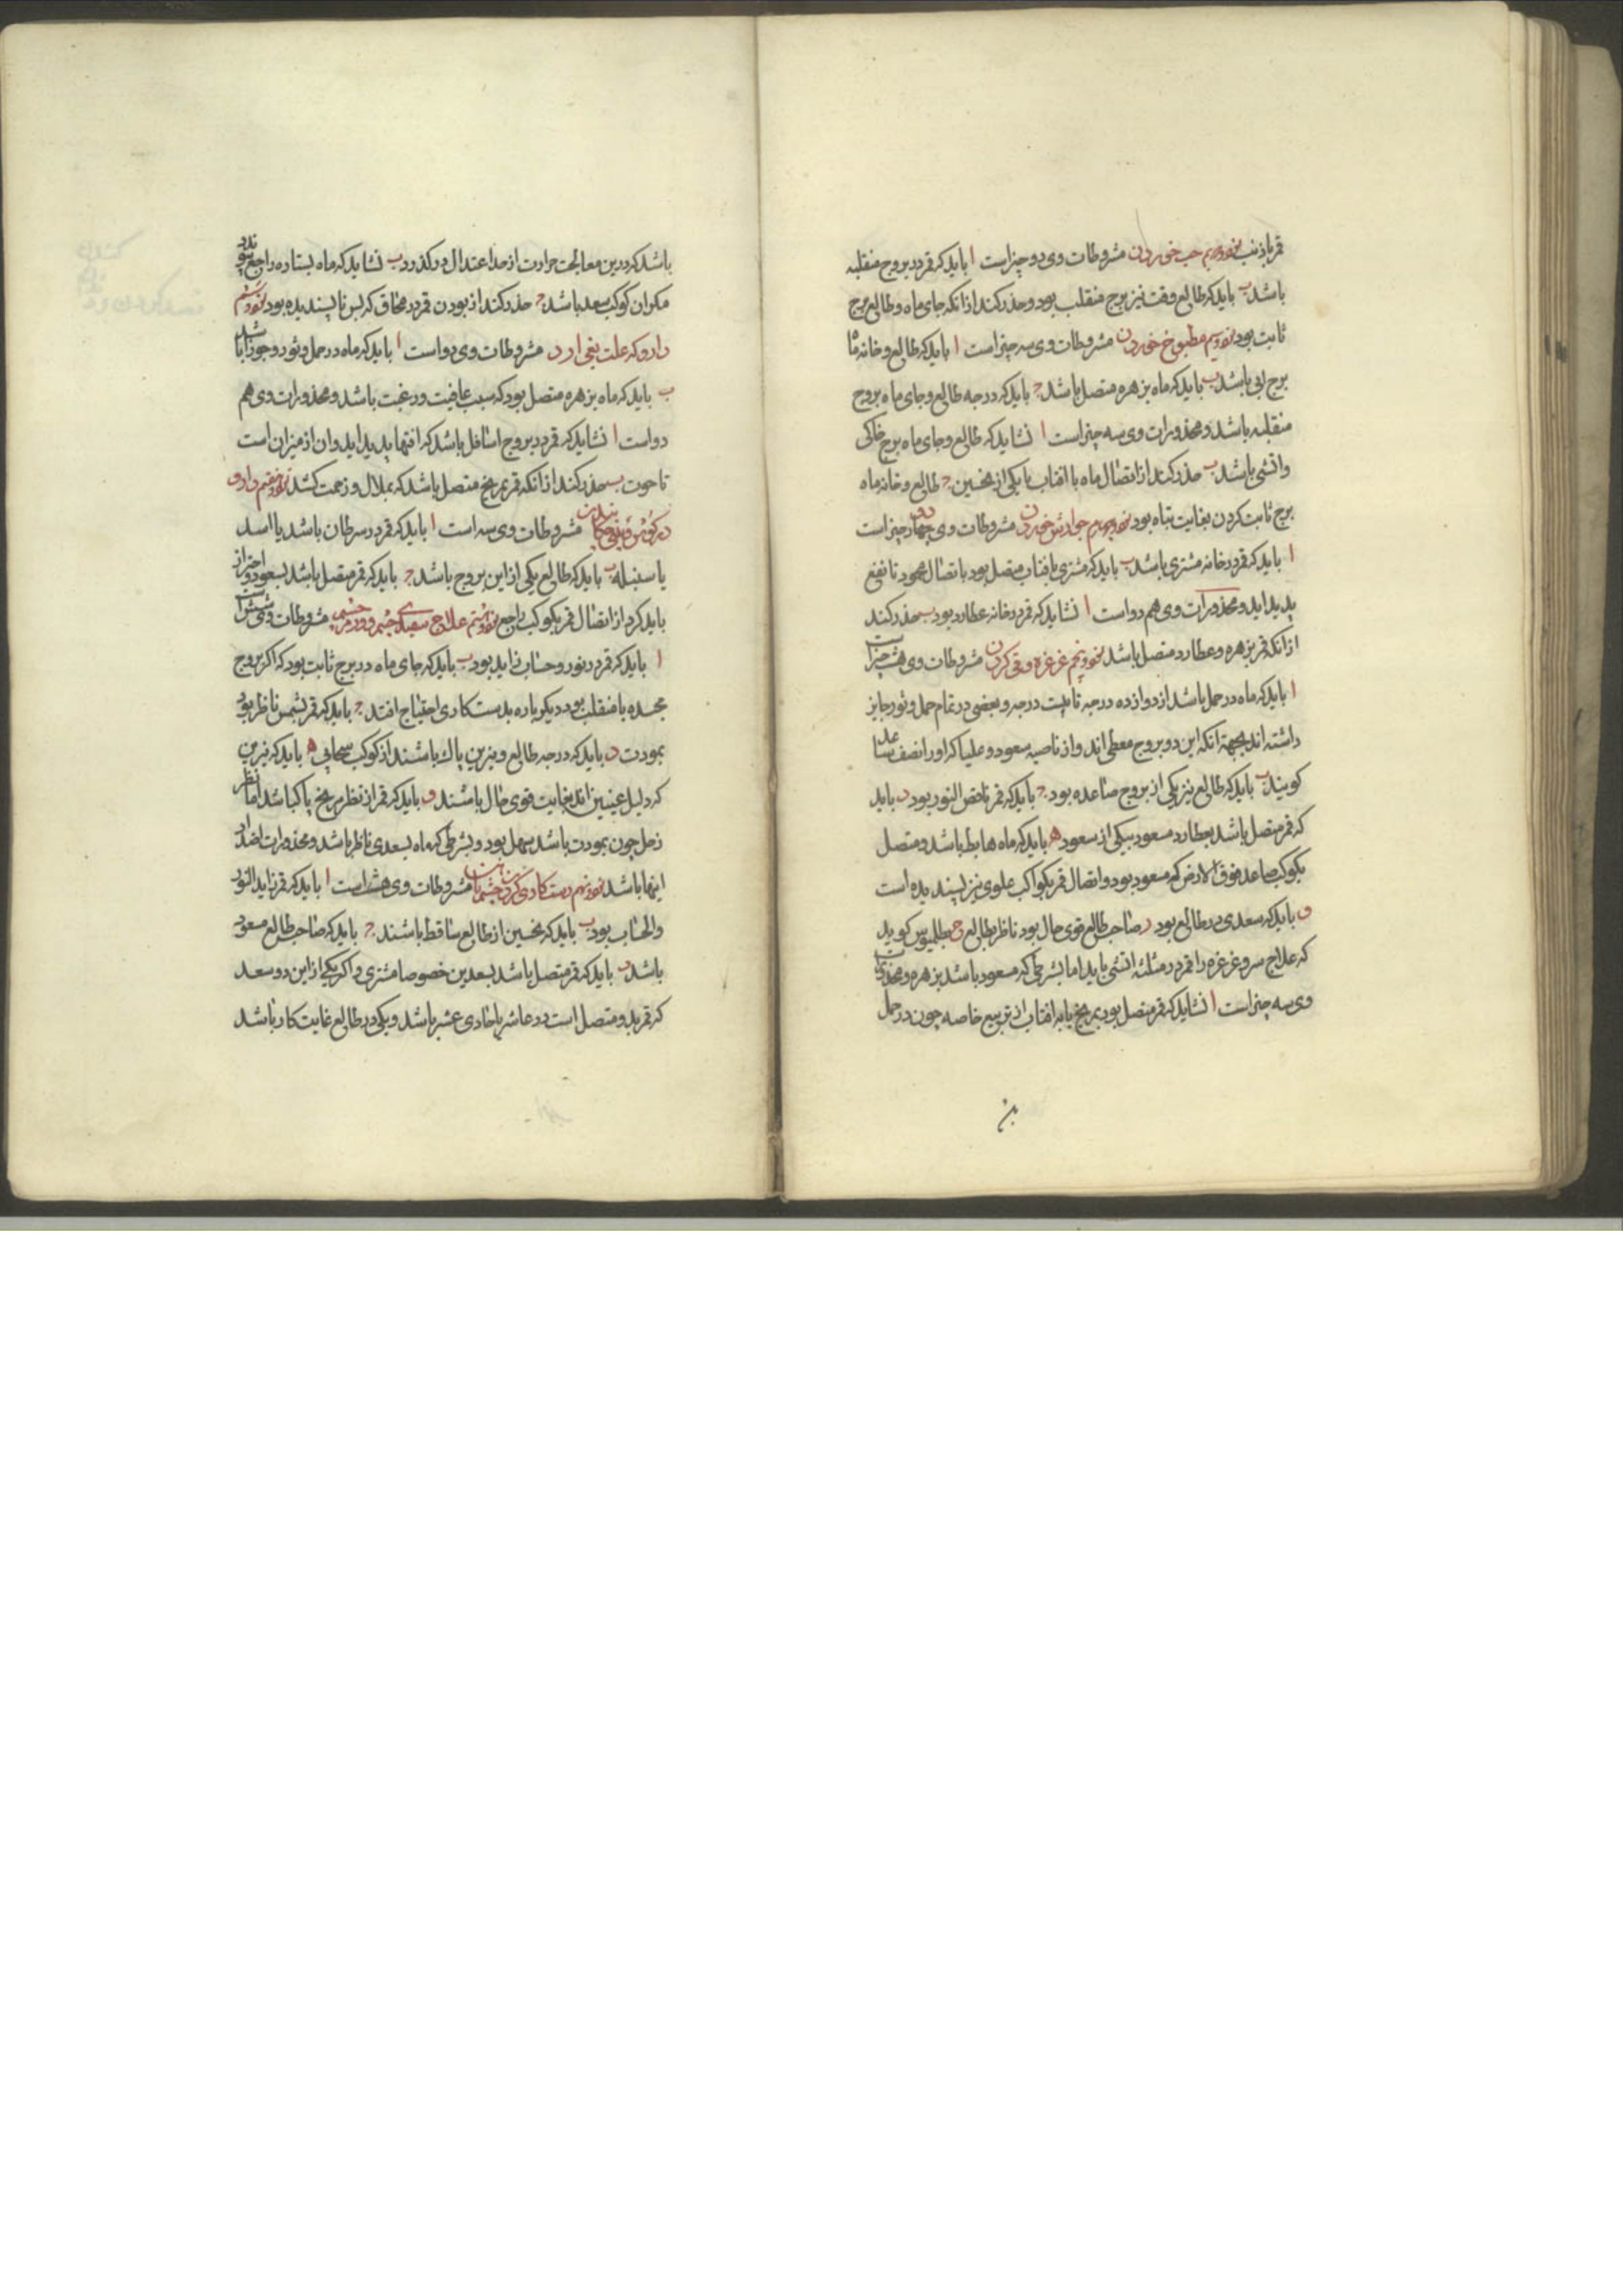 قمر باذنب نود و دوم حب خوردن مشروطات وی دو چیز است ا باید که قمر در بروج منقلبه
باشد ب باید که طالع وقت نیز برج منقلب بود و حذر کند از انکه جای ماه و طالع برج
ثابت بود نود و سوم مطبوخ خوردن مشروطات وی سه چیز است ا باید که طالع و خانه ماه
برج ابی باشد ب باید که ماه بزهره متصل باشد ج باید که درجه طالع و جای ماه بروج
منقلبه باشد و محذورات وی سه چیز است ا نشاید که طالع و جای ماه برج خاکی
واتشی باشد ب حذر کند از اتصال ماه با افتاب یا یکی از نحسین ج طالع و خانه ماه
برج ثابت کردن بغایت تباه بود نود و چهارم جوارش خوردن مشروطات وی چهار چیز است
ا باید که قمر در خانه مشتری باشد ب باید که مشتری بافتاب متصل بود باتصال محمود تا نفع
پدید اید و محذورات وی هم دو است ا نشاید که قمر در خانه عطارد بود ب حذر کند
از انکه قمر بزهره و عطارد متصل باشد نود و پنجم غرغره و قی کردن مشروطات وی هشت چیز است
ا باید که ماه در حمل باشد از دوازده درجه تا بیست درجه و بعضی در تمام حمل و ثور جایز
داشته اند بجهة انکه این دو بروج معطی اند و از ناصیه سعود و علیا که اورا نصف
کویند ب باید که طالع نیز یکی از بروج صاعده بود ج باید که قمر ناقص النور بود د باید
که قمر متصل باشد بعطارد مسعود بیکی از سعود ه باید که ماه هابط باشد و متصل
بکوکب صاعد فوق الارض که مسعود بود و اتصال قمر بکواکب علوی نیز پسندیده است
و باید که سعدی در طالع بود ز صاحب طالع قوی حال بود ناظر بطالع ح بطلمیوس کوید
که علاج سر و غرغره را قمر در مثلثه اتشی باید اما بشرطی که مسعود باشد بزهره و محذورات
وی سه چیز است ا نشاید که قمر متصل بود بمریخ یا به افتاب از تربیع خاصه چون در حمل
باشد که درین معالجت حرارت از حد اعتدال درگذرد ب نشاید که ماه بستاره راجع پیوندد
مکر ان کوکب سعد باشد ج حذر کند از بودن قمر در محاق که بس ناپسندیده بود نود و ششم
دارو که علت بفی ارد مشروطات وی دو است ا باید که ماه در حمل و ثور و جوزا باشد
ب باید که ماه بزهره متصل بود که سبب عافیت و رغبت باشد و محذورات وی هم
دو است ا نشاید که قمر در بروج اسافل باشد که افتها پدید اید و ان از میزان است
تا حوت ب حذر کند از انکه قمر بمریخ متصل باشد که بملال و زحمت کشد نود و هفتم دارو
در کوش و بینی چکانیدن مشروطات وی سه است ا باید که قمر در سرطان باشد یا اسد
یا سنبله ب باید که طالع یکی از این بروج باشد ج باید که قمر متصل باشد بسعود و احتراز
باید کرد از اتصال قمر بکوکب راجع نود و هشتم علاج سپیدی چشم و ورم چشم مشروطات وی شش است
ا باید که قمر در نور و حساب زاید بود ب باید که جای ماه در برج ثابت بود که اکر بروج
مجسده یا منقلب بود دیکر باره بدست کاری احتیاج افتد ج باید که قمر بشمس ناظر بود
بمودت د باید که درجه طالع و نیرین پاک باشند از کوکب سحابی ه باید که نیرین
که دلیل عینین اند بغایت قوی حال باشند و باید که قمر از نظر مریخ پاک باشد اما نظر
زحل چون بمودت باشد سهل بود و بشرطی که ماه بسعدی ناظر باشد و محذورات اضداد
اینها باشد نود و نهم دست کاری کردن چشم باهن مشروطات وی هشت است ا باید که قمر زاید النور
والحساب بود ب باید که نحسین از طالع ساقط باشند ج باید که صاحب طالع مسعود
باشد د باید که قمر متصل باشد بسعدین خصوصا مشتری و اکر یکی از این دو سعد
که قمر بدو متصل است در عاشر یا حادی عشر باشد و یکی در طالع غایت کار باشد
بن